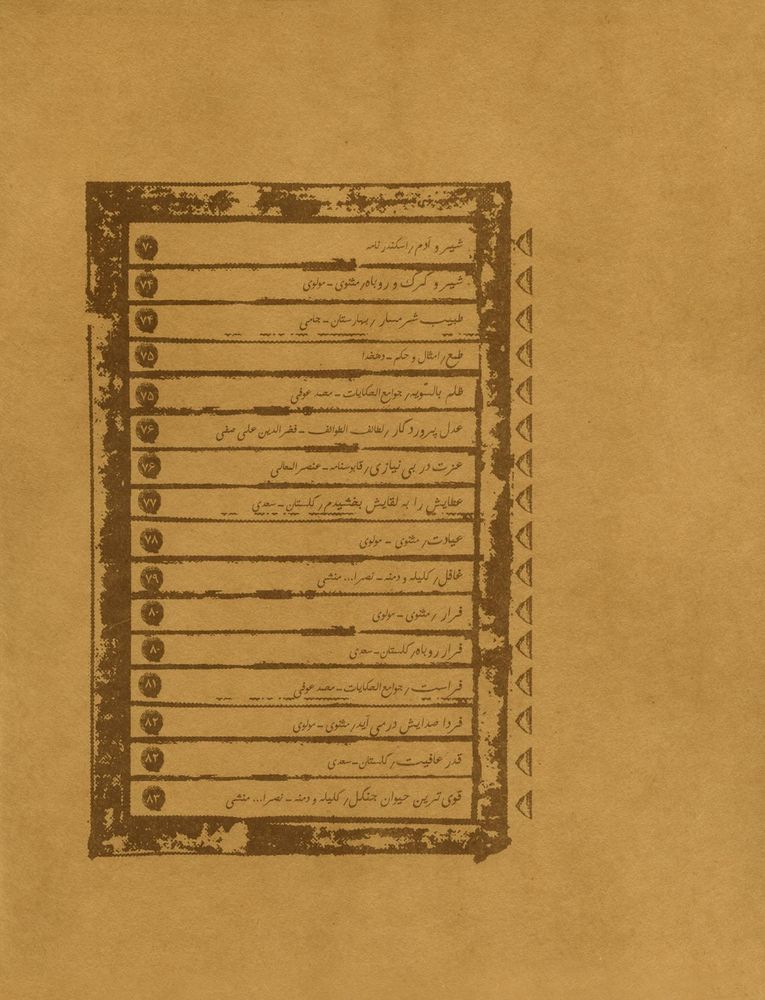 شیر و آدم/اسکندرنامه ۷۰
شیر و گرگ و روباه/مثنوی - مولوی ۷۴
طبیب شرمسار/بهارستان - جامی ۷۴
طمع/امثال و حکم - دهخدا ۷۵
ظلم بالسویه/جوامع‌الحکایات - محمد عوفی ۷۵
عدل پروردگار/لطائف الطوائف - فخرالدین علی صفی ۷۶
عزت در بی نیازی/قابوسنامه - عنصرالمعالی ۷۶
عطایش را به لقایش بخشیدم/گلستان - سعدی ۷۷
عیادت/مثنوی - مولوی ۷۸
غافل/کلیله و دمنه - نصرا... منشی ۷۹
فرار/مثنوی - مولوی ۸۰
فرار روباه/گلستان - سعدی ۸۰
فراست/جوامع‌الحکایات - محمد عوفی ۸۱
فردا صدایش درمی آید/مثنوی - مولوی ۸۲
قدر عافیت/گلستان - سعدی ۸۲
قوی ترین حیوان جنگل/کلیله و دمنه - نصرا... منشی ۸۳